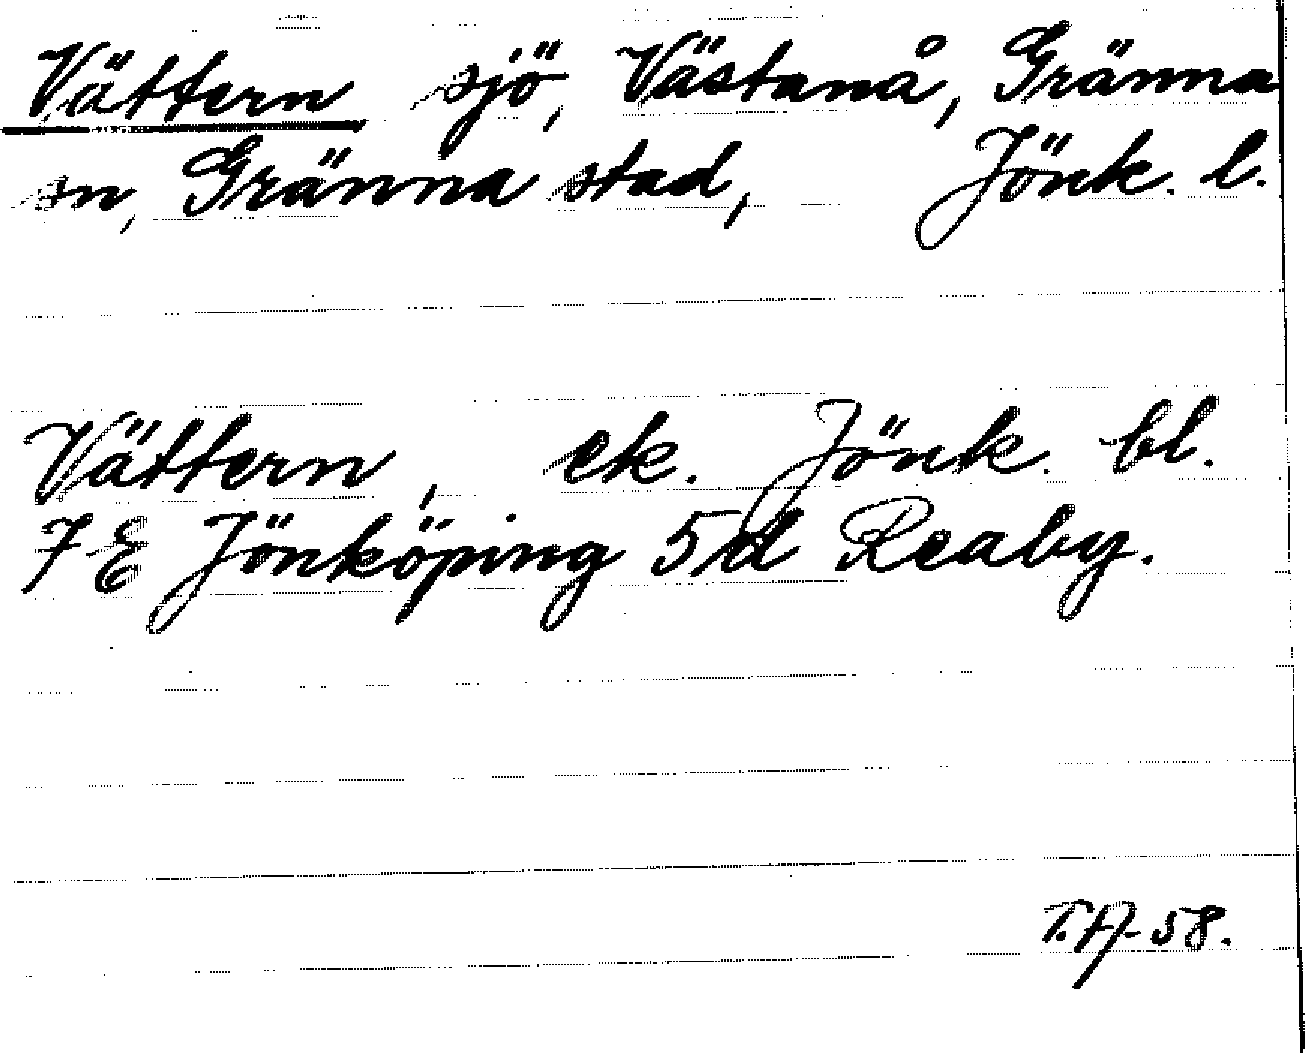 Vättern sjö, Västanå, Gränna
sn, Gränna stad, Jönk. l.
Vättern, ek. Jönk. bl.
7 E Jönköping 5 d Reaby.
58.